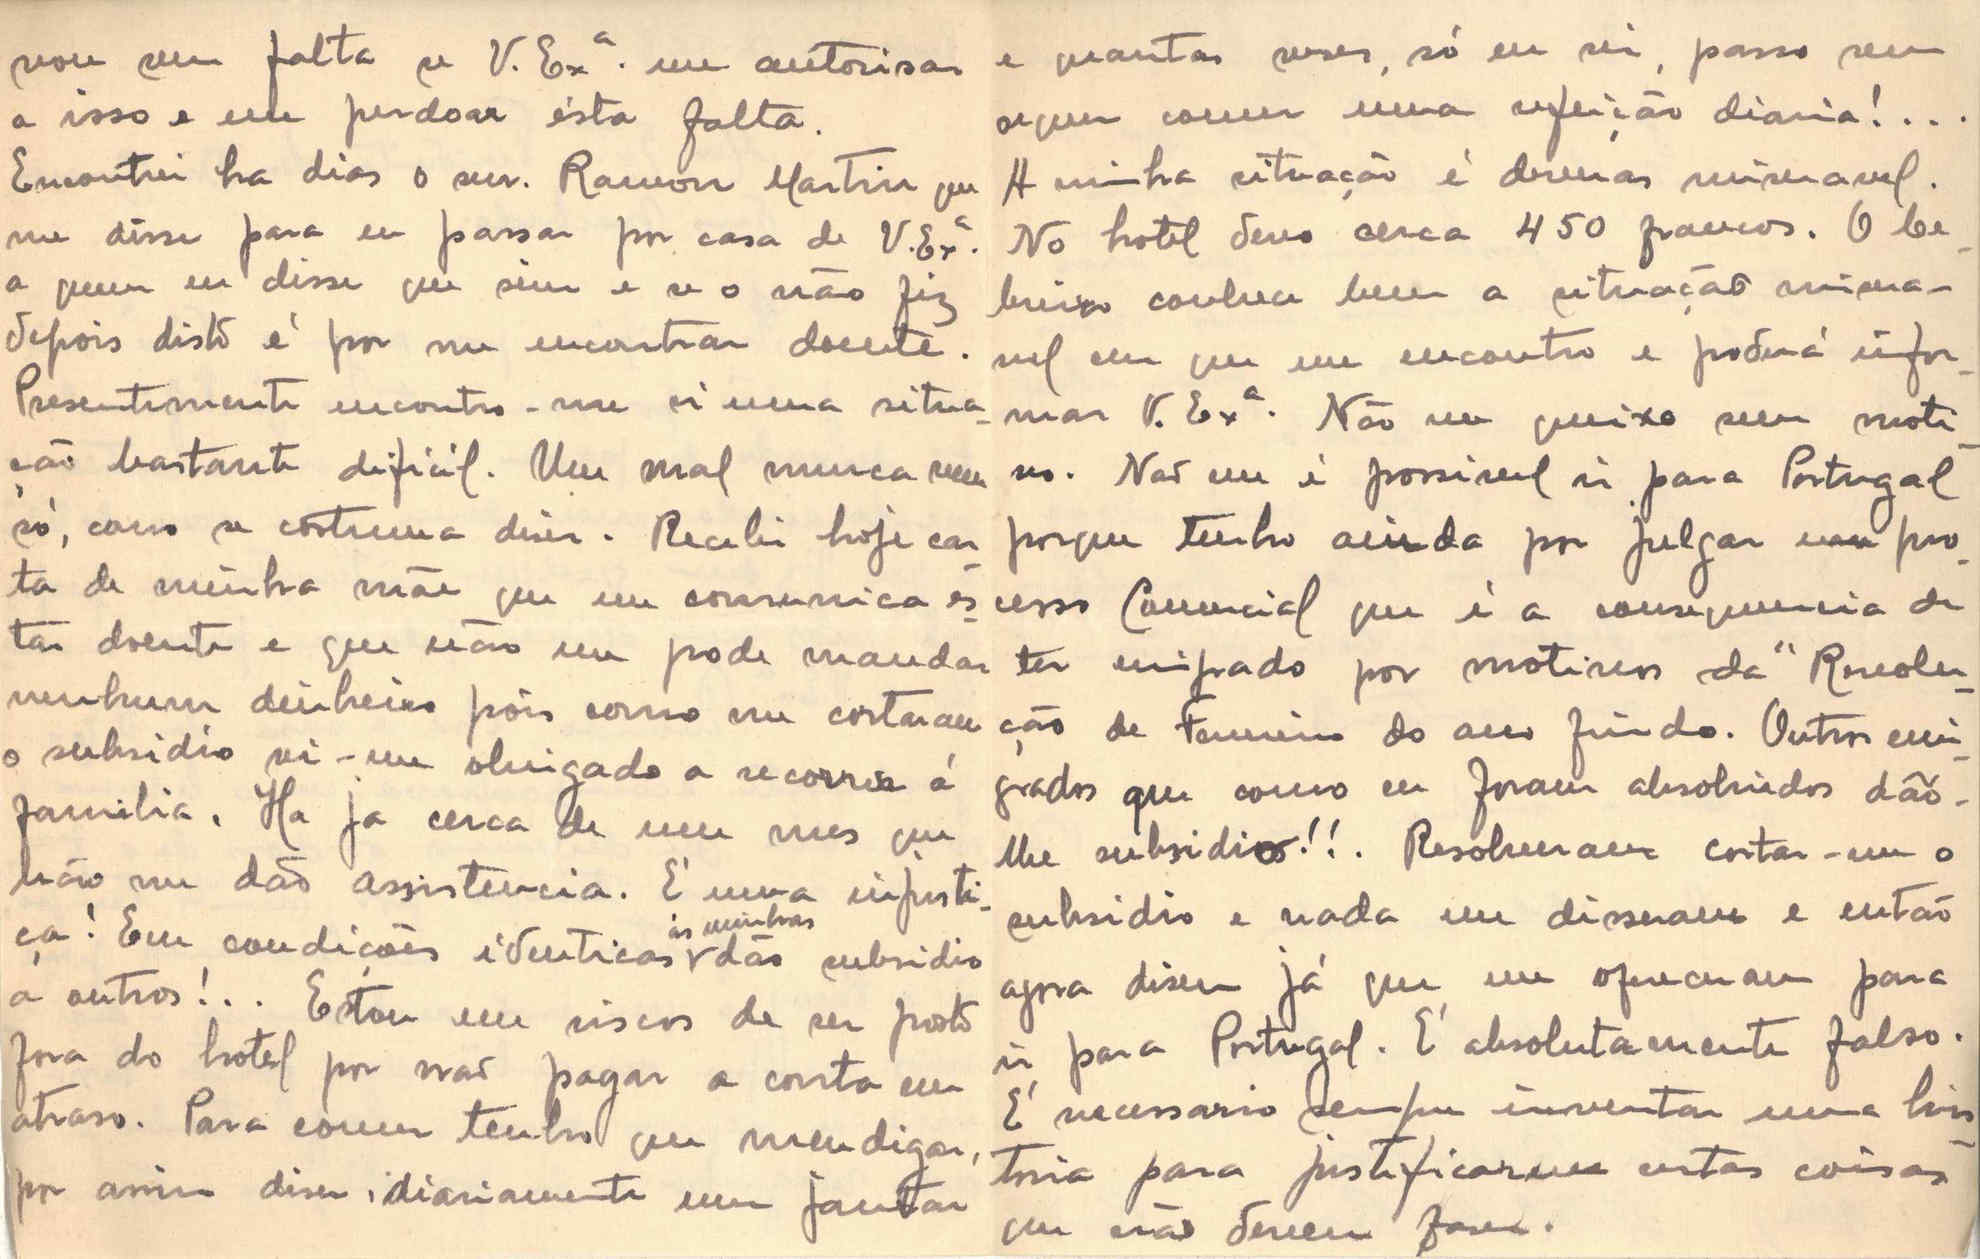 vou sem falta se V. Exª. me autorisar
a isso e me perdoar ésta falta.
Encontrei ha dias o snr. Ramon Martin que
me disse para eu passar por casa de V. Exª.
a quem eu disse que sim e se o não fiz
depois disto é por me encontrar doente.
Presentemente encontro-me n'uma situa-
ção bastante dificil. Um mal nunca vem
só, como se costuma diser. Recebi hoje car-
ta de minha mãe que me comunica és-
tar doente e que não me pode mandar
nenhum dinheiro pois como me cortaram
o subsidio vi-me obrigado a recorrer á
familia. Ha já cerca de um mes que
não me dão assistencia. É uma injusti-
ça! Em condições identicas ás minhas dão subsidio
a outros!... Estou em riscos de ser posto
fora do hotel por não pagar a conta em
atraso. Para comer tenho que mendigar,
por assim diser, diariamente um jantar
e quantas veses, só eu sei, passo sem
sequer comer uma refeição diaria!...
A minha situação é deveras miseravel.
No hotel devo cerca 450 francos. O Be-
breixo conhece bem a situação misera-
vel em que me encontro e poderá infor-
mar V. Exª. Não me queixo sem moti-
vo. Não me é possivel ir para Portugal
porque tenho ainda por julgar um pro-
cesso Comercial que é a consequencia de
ter emigrado por motivos da "Revolu-
ção de Fevereiro do ano findo. Outros emi-
grados que como eu foram absolvidos dão-
lhe subsidios!!. Resolveram cortar-me o
subsidio e nada me disseram e então
agora disem já que me ofereceram para
ir para Portugal. É absolutamente falso.
É necessario sempre inventar uma his-
toria para justificarem certas coisas
que não devem faser.